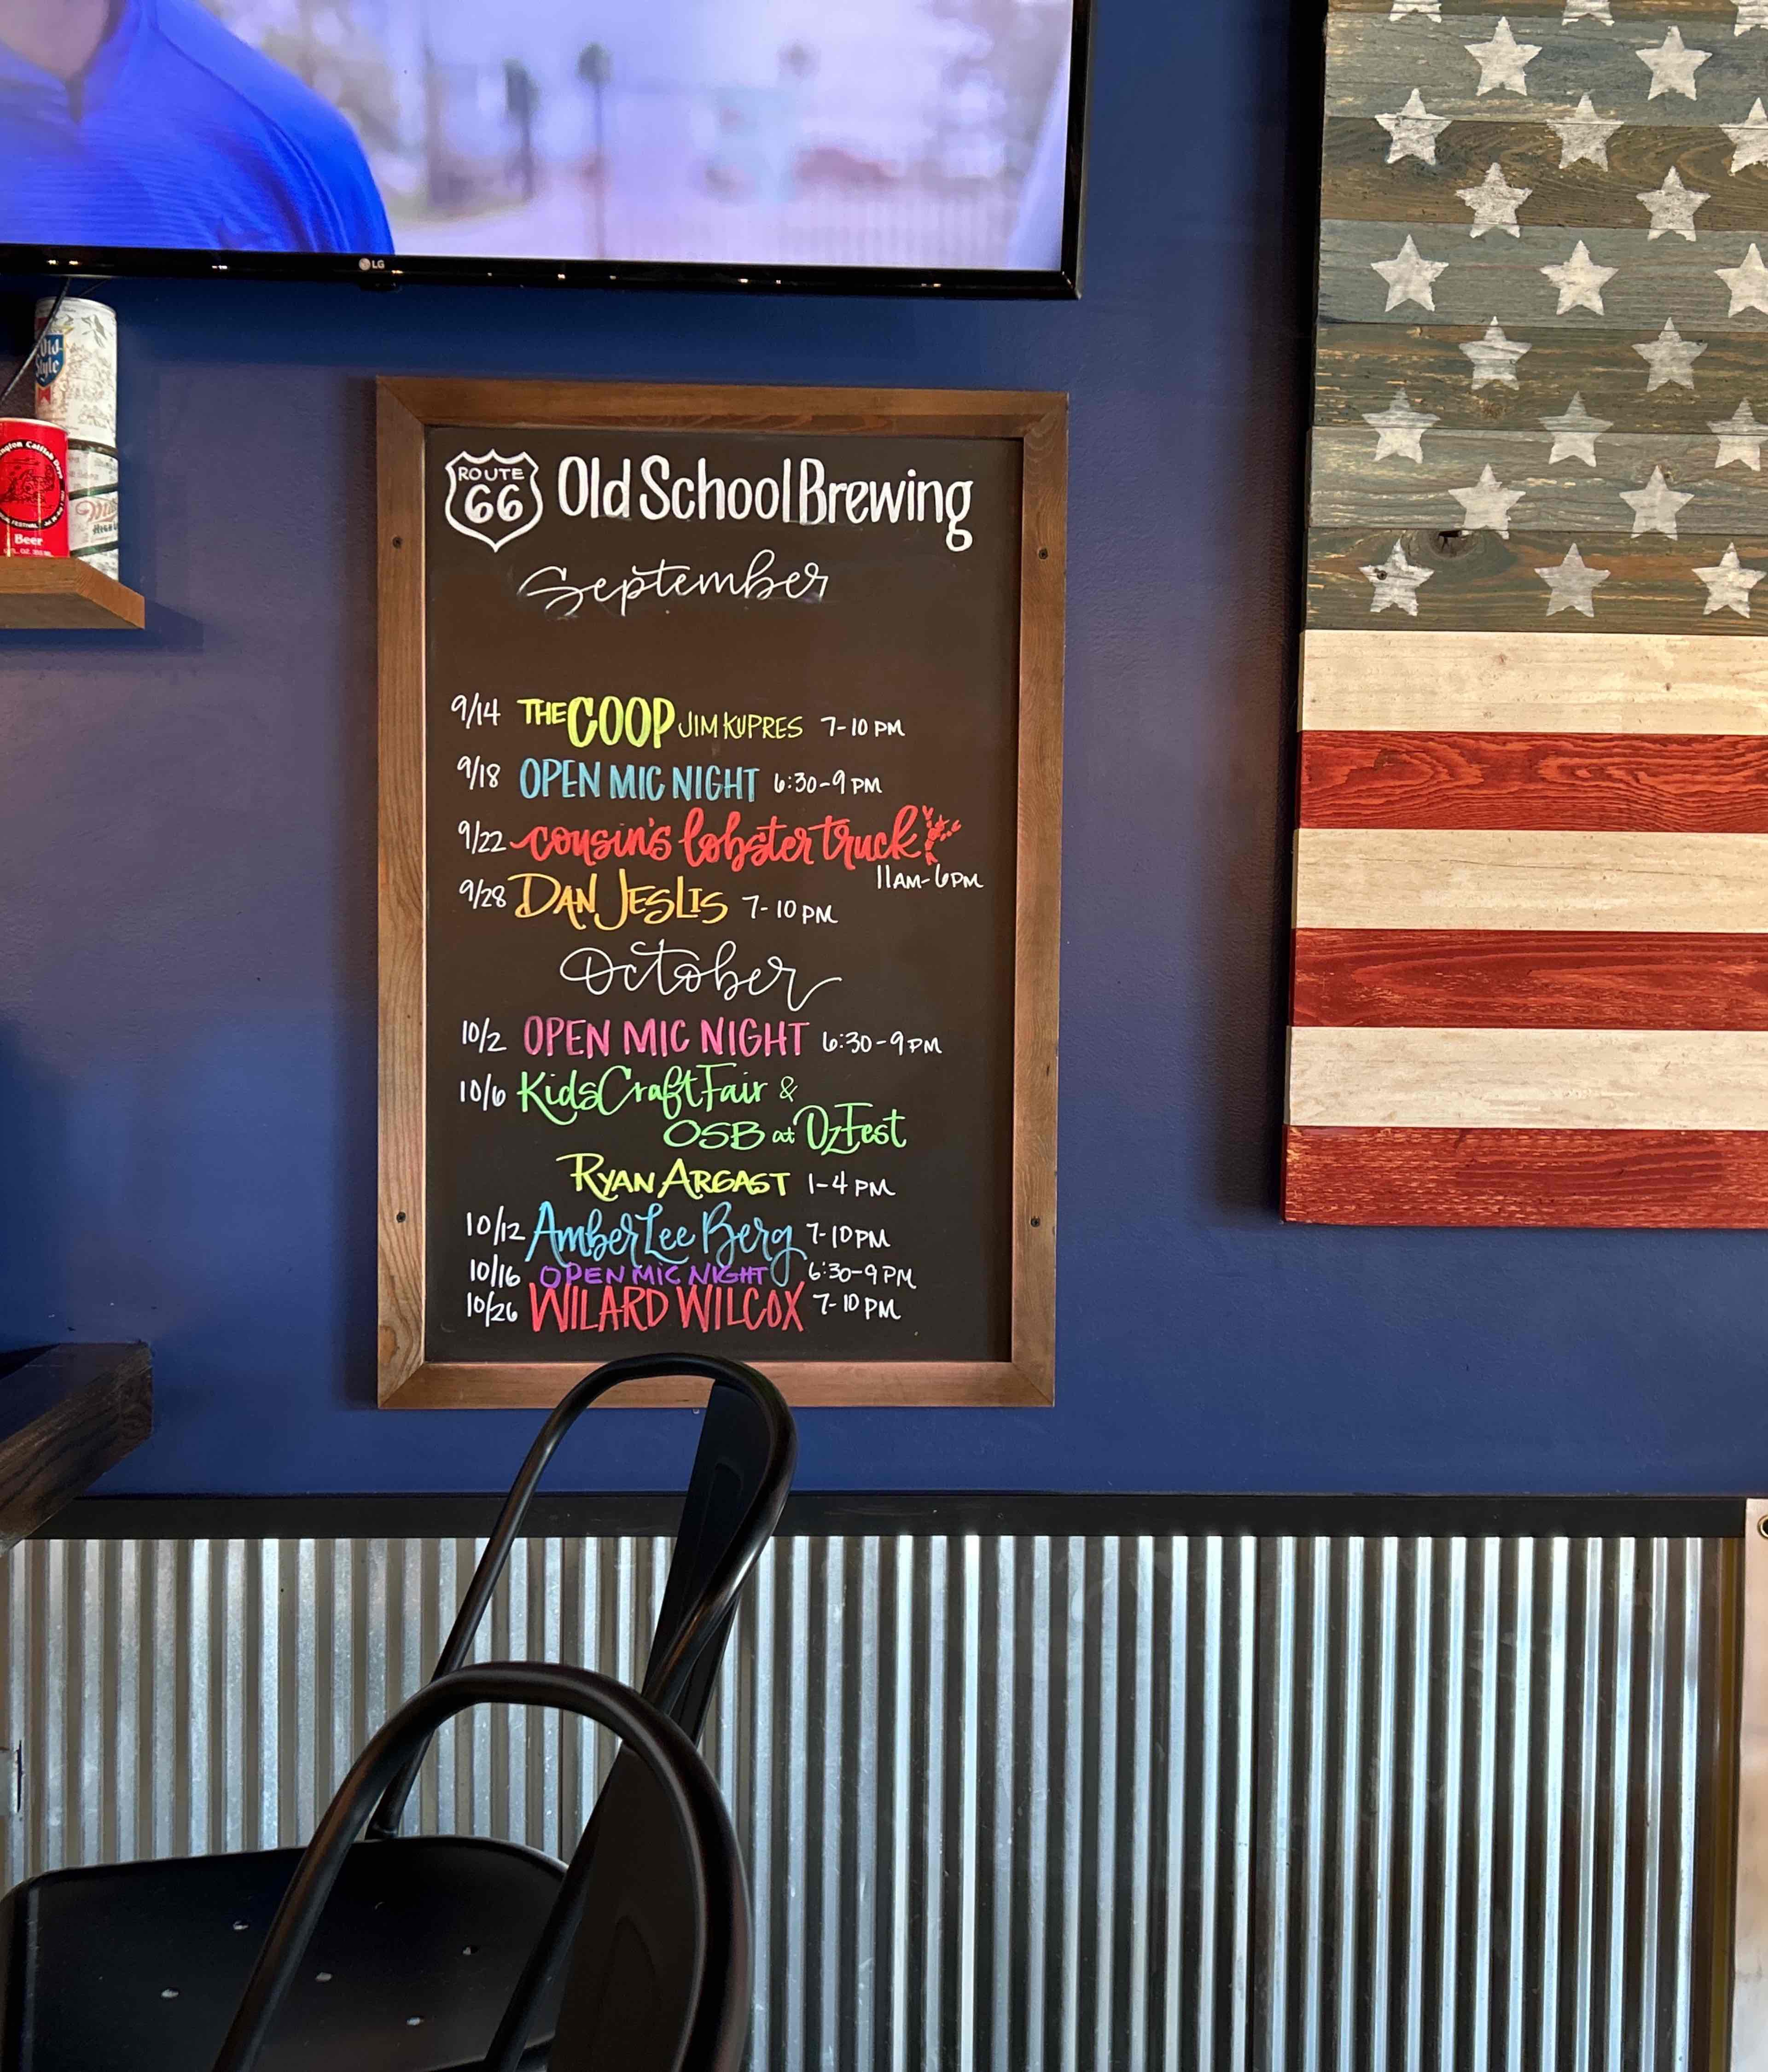 LG
Old
Style
Beer
ROUTE
66
Old School Brewing
September
9/14 THE COOP JIM KUPRES 7-10 PM
9/18 OPEN MIC NIGHT 6:30-9 PM
9/22 cousin's lobster truck
11AM-6PM
9/28 DAN JESLIS 7-10 PM
October
10/2 OPEN MIC NIGHT 6:30-9 PM
10/6 Kids Craft Fair &
OSB at OzFest
RYAN ARGAST 1-4 PM
10/12 Amber Lee Berg 7-10PM
10/16 OPEN MIC NIGHT 6:30-9 PM
10/26 WILARD WILCOX 7-10 PM